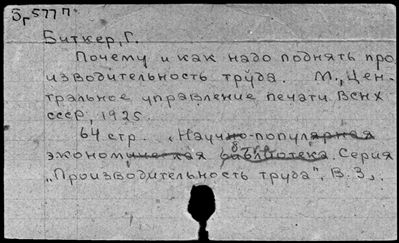 Биткер, Г.
Почему и как надо поднять про
изводительность труда. М., Цен-
тральное управление печати ВСНХ
СССР, 1925.
64 стр. „Научно-популярная
экономическая библиотека. Серия
„Производительность труда", В. 3„.